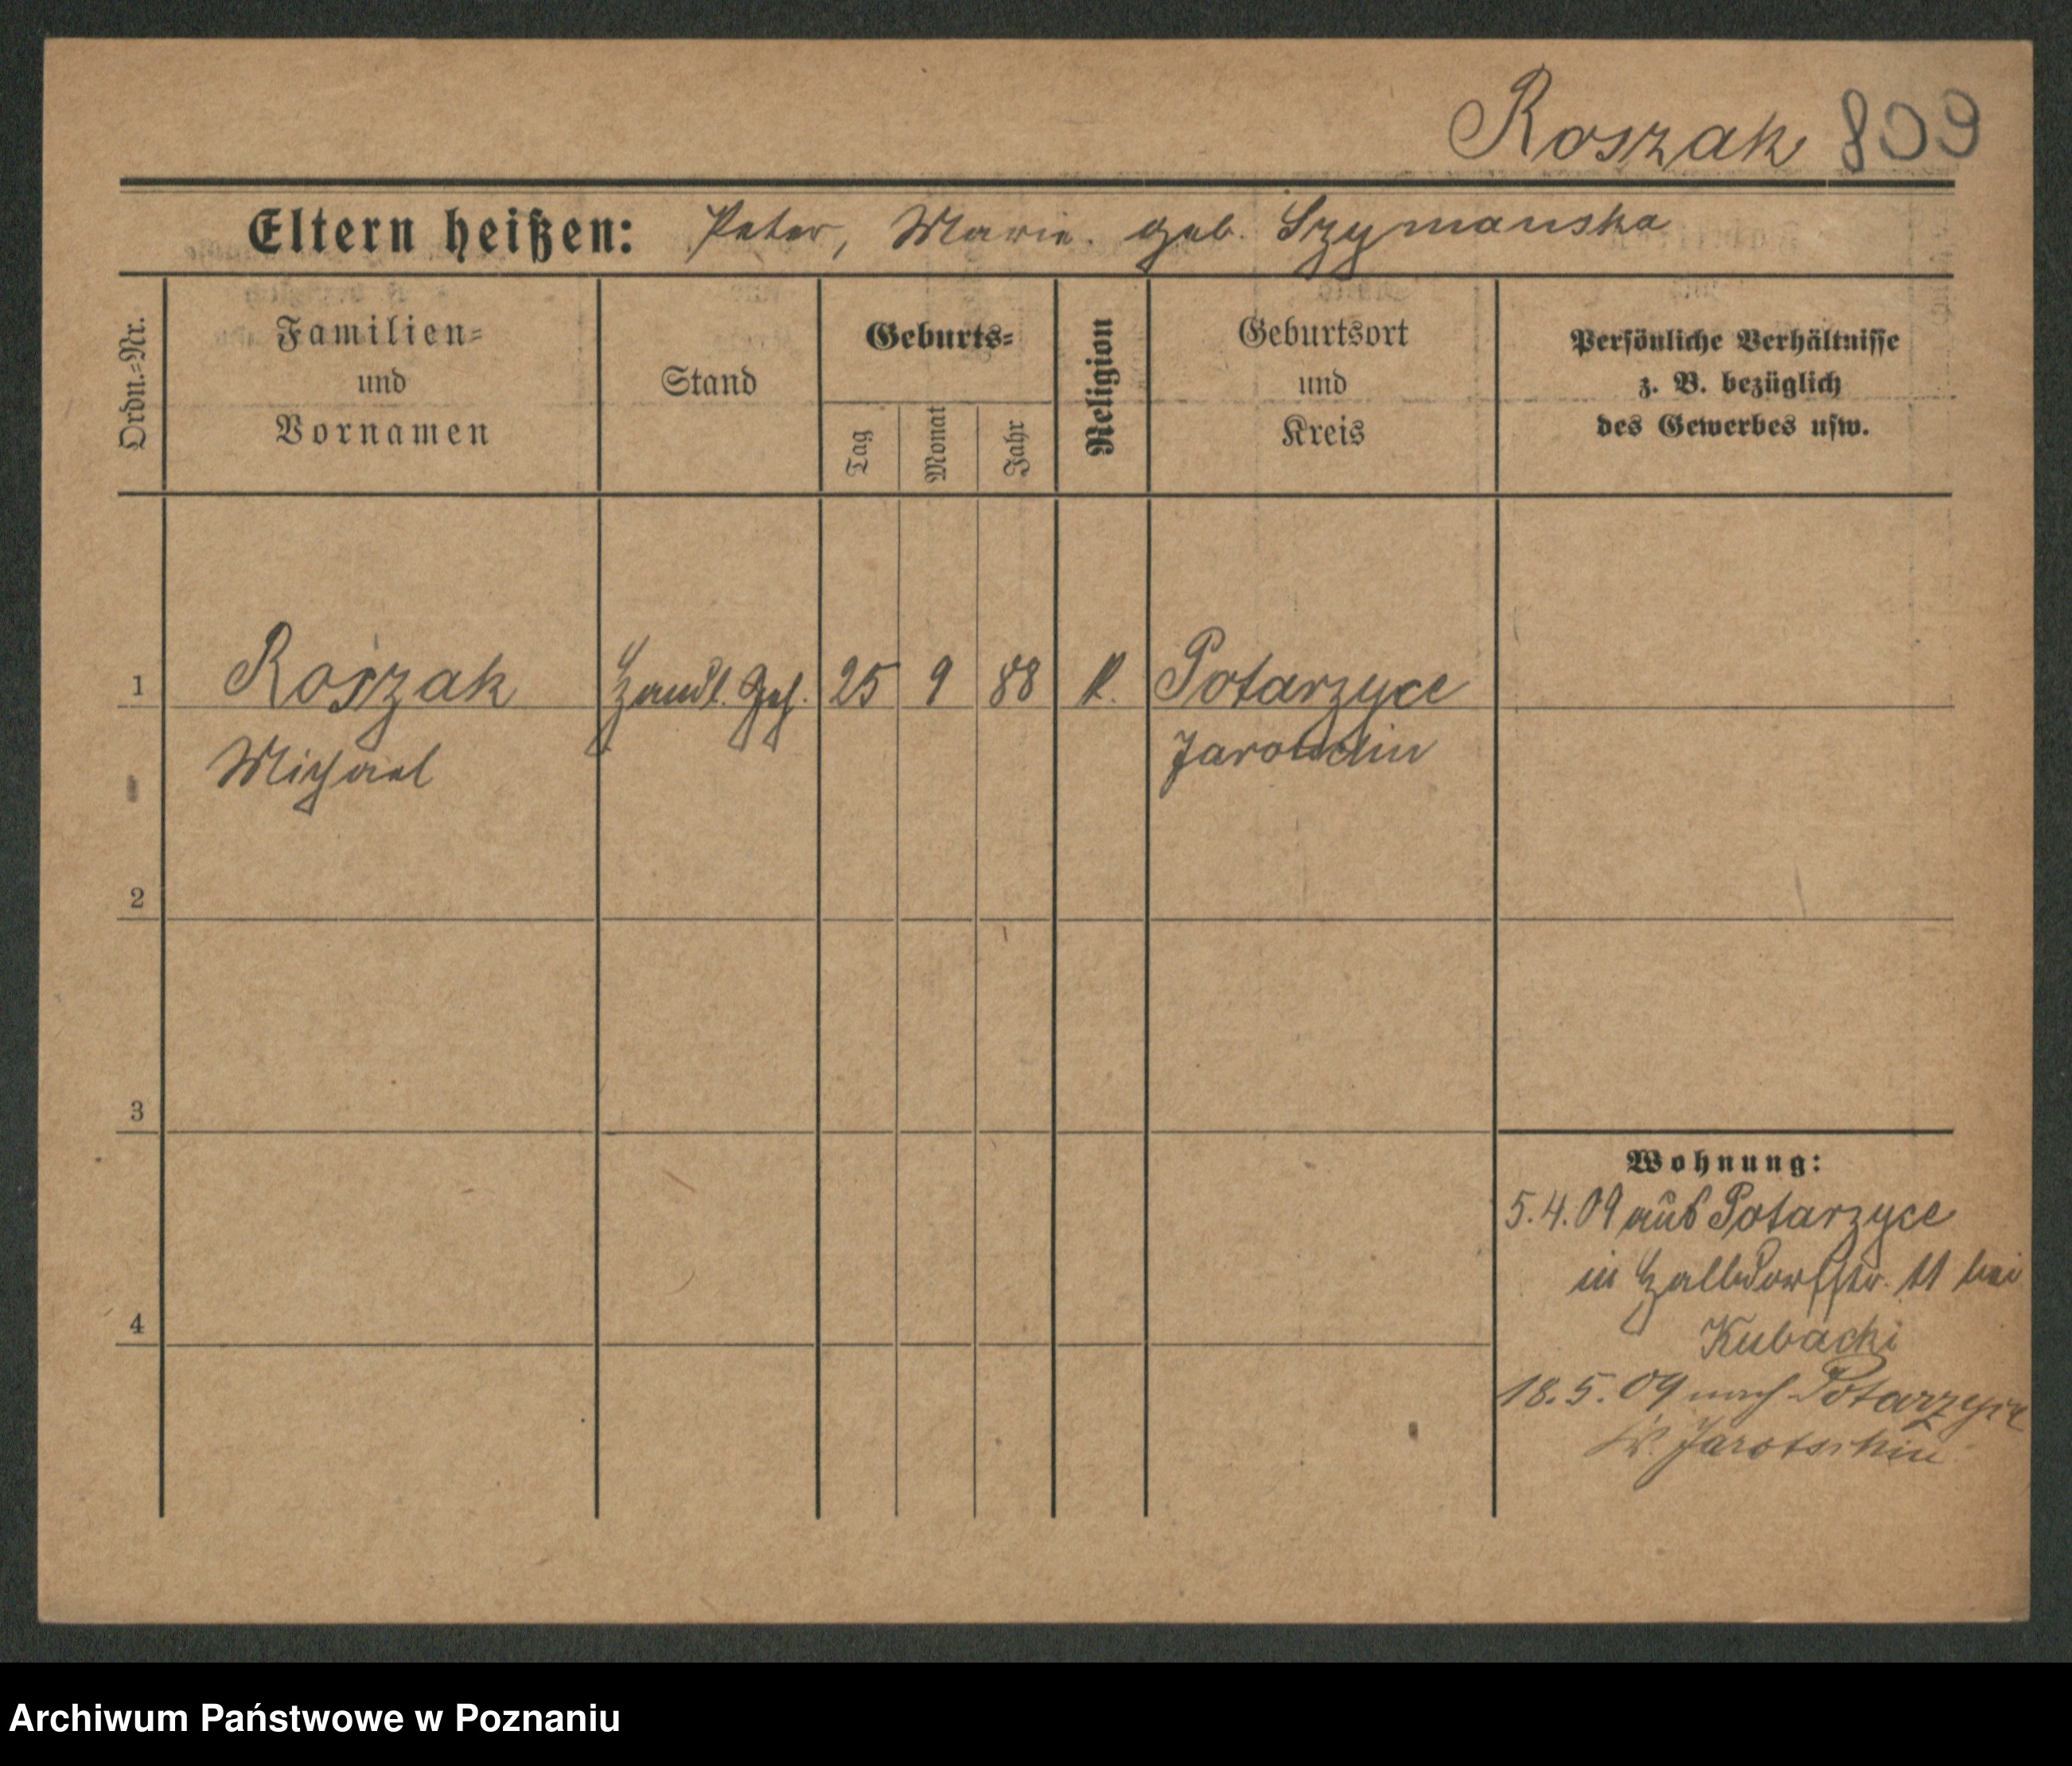 Roszak 809
Eltern heißen: Peter, Marie. geb. Szymanska
Ordn.=Nr.
Familien=
und
Vornamen
Stand
Geburts=
Tag
Monat
Jahr
Religion
Geburtsort
und
Kreis
Persönliche Verhältnisse
z. B. bezüglich
des Gewerbes usw.
1 Roszak Handl. Geh. 25 9 88 k. Potarzyce
Michael
2
3
4
Wohnung:
5.4.09 aus Potarzyce
in Halldorfstr. 11 bei
Kubacki
18.5.09 nach Potarzyce
Kr. Jarotschin
Archiwum Państwowe w Poznaniu